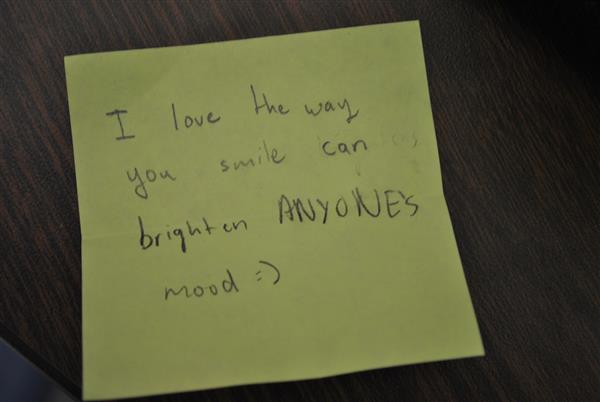 I love the way
you smile can
brighten ANYONE'S
mood =)